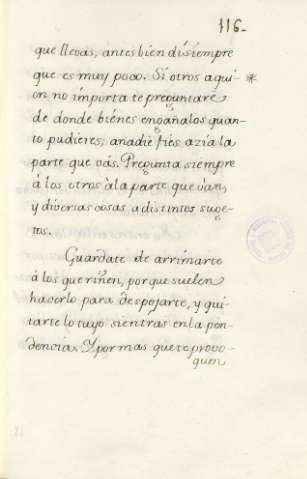 116-
que llevas, antes bien di siempre
que es muy poco. Si otros aqui- *
en no importa te preguntare
de donde bienes engañalos quan-
to pudieres; anadie fies azía la
parte que vàs. Pregunta siempre
á los otros à la parte que ván,
y diversas cosas a distintos suge-
tos.
Guardate de arrimarte
à los que riñen, porque suelen
hacerlo para despojarte, y qui-
tarte lo tuyo si entras en la pen-
dencia. Y por mas que te provo-
quen